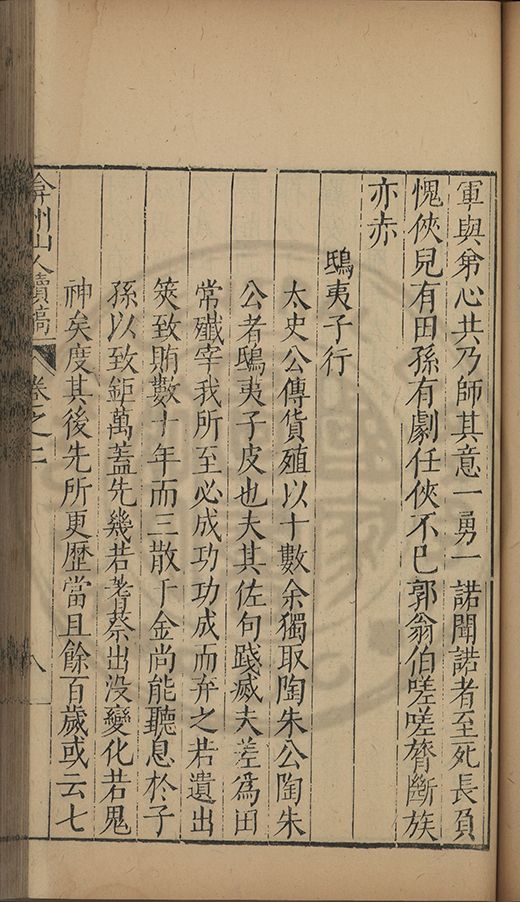 軍與弟心共乃師其意一勇一諾聞諾者至死長負
愧俠兒有田孫有劇任俠不已郭翁伯嗟嗟膂斷族
亦赤
鴟夷子行
太史公傳貨殖以十數余獨取陶朱公陶朱
公者鴟夷子皮也夫其佐句踐烕夫差爲田
常殲宰我所至必成功功成而弃之若遺出
筴致賄數十年而三散千金尚能聽息於子
孫以致鉅萬蓋先幾若蓍蔡出没變化若鬼
神矣度其後先所更歷當且餘百歲或云七
弇州山人續稿 卷之二 八